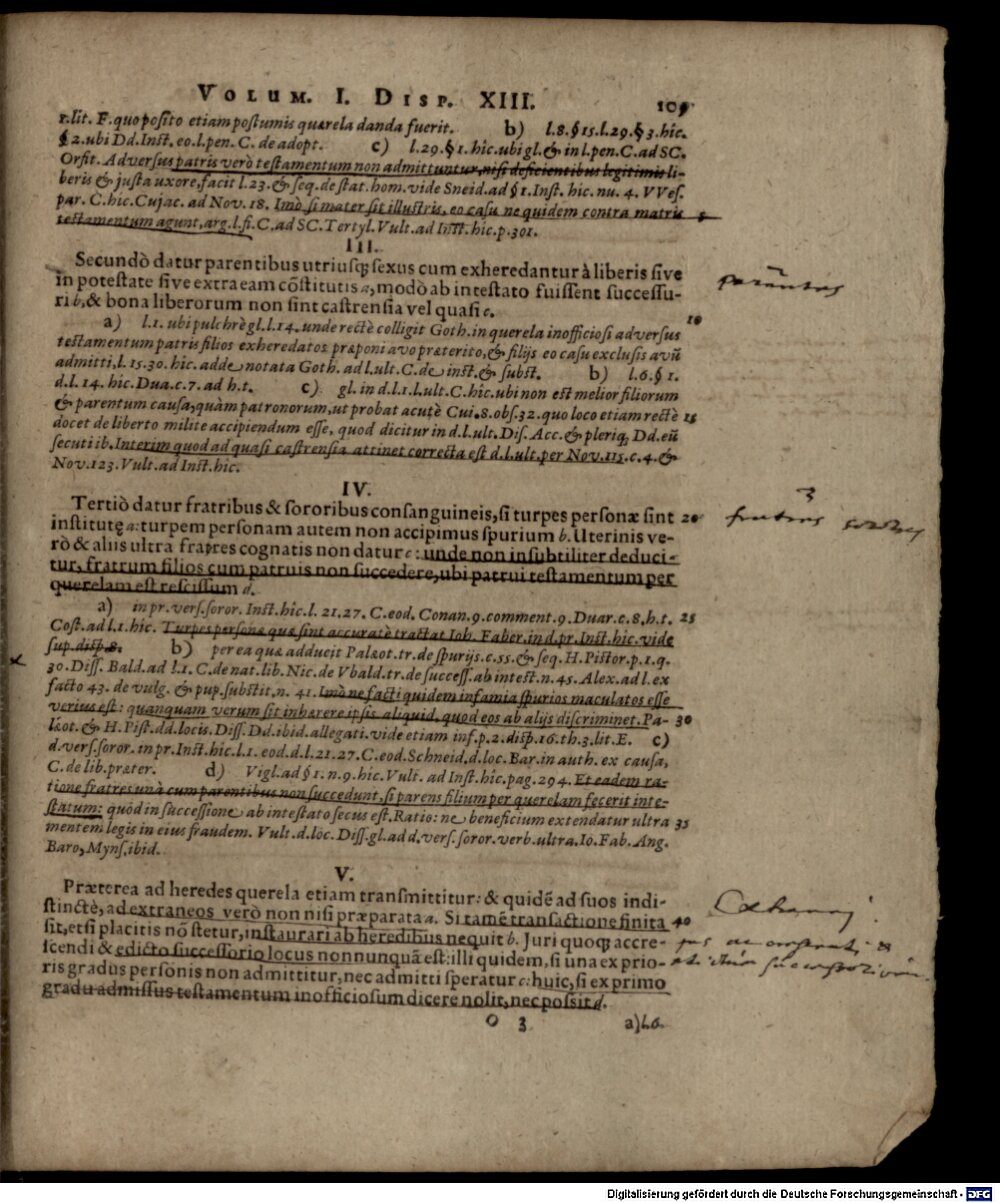 VOLUM. I. DISP. XIII. 109
r. lit. F. quo posito etiam postumis quærela danda fuerit. b) l.8.§15.l.29.§3.hîc.
§2.ubi Dd.Inst. eo.l.pen. C. de adopt. c) l.29.§1.hîc.ubi gl.& in l.pen.C.ad SC.
Orfit. Adversus patris verò testamentum non admittuntur, nisi deficientibus legitimis li-
beris & justa uxore, facit l.23.& seq. de stat. hom. vide Sneid. ad §1. Inst. hîc. nu. 4. VVes.
par. C. hîc. Cujac. ad Nov. 18. Imò si mater sit illustris, eo casu ne quidem contra matris 5
testamentum agunt, arg. l. fi. C. ad SC. Tertyl. Vult. ad Inst. hîc. p. 301.
III.
Secundò datur parentibus utriusq; sexus cum exheredantur à liberis sive
in potestate sive extra eam cõstitutis a, modò ab intestato fuissent successu-
ri b, & bona liberorum non sint castrensia vel quasi c.
10
a) l.1. ubi pulchrè gl. l.14. unde rectè colligit Goth. in querela inofficiosi adversus
testamentum patris filios exheredatos præponi avo præterito, & filijs eo casu exclusis avũ
admitti, l. 15. 30. hîc. adde notata Goth. ad l. ult. C. de inst. & subst. b) l.6.§ 1.
d.l. 14. hîc. Dua. c. 7. ad h.t. c) gl. in d. l.1. l. ult. C. hîc. ubi non est melior filiorum
& parentum causa, quàm patronorum, ut probat acutè Cui. 8. obs. 32. quo loco etiam rectè 15
docet de liberto milite accipiendum esse, quod dicitur in d. l. ult. Dis. Acc. & pleriq; Dd. eũ
secuti ib. Interim quod ad quasi castrensia attinet correcta est d. l. ult. per Nov. 115. c. 4. &
Nov. 123. Vult. ad Inst. hîc.
IV.
Tertiò datur fratribus & sororibus consanguineis, si turpes personæ sint 20
institutę a: turpem personam autem non accipimus spurium b. Uterinis ve-
rò & aliis ultra fratres cognatis non datur c: unde non insubtiliter deduci-
tur, fratrum filios cum patruis non succedere, ubi patrui testamentum per
querelam est rescissum d.
a) in pr. vers. soror. Inst. hîc. l. 21. 27. C. eod. Conan. 9. comment. 9. Duar. c. 8. h. t. 25
Cost. ad l. 1. hîc. Turpes personæ quæ sint accuratè tractat Ioh. Faber. in d. pr. Inst. hîc. vide
sup. disp. 8. b) per ea quæ adducit Palæot. tr. de spurijs. c. 55. & seq. H. Pistor. p. 1. q.
30. Diss. Bald. ad l. 1. C. de nat. lib. Nic. de Vbald. tr. de success. ab intest. n. 45. Alex. ad l. ex
facto 43. de vulg. & pup. substit. n. 41. Imò ne facti quidem infamia spurios maculatos esse
verius est: quanquam verum sit inhærere ipsis aliquid, quod eos ab alijs discriminet. Pa- 30
læot. & H. Pist. dd. locis. Diss. Dd. ibid. allegati. vide etiam inf. p. 2. disp. 16. th. 3. lit. E. c)
d. vers. soror. in pr. Inst. hîc. l. 1. eod. d. l. 21. 27. C. eod. Schneid. d. loc. Bar. in auth. ex causa,
C. de lib. præter. d) Vigl. ad § 1. n. 9. hîc. Vult. ad Inst. hîc. pag. 294. Et eadem ra-
tione fratres unà cum parentibus non succedunt, si parens filium per querelam fecerit inte-
statum: quòd in successione ab intestato secus est. Ratio: ne beneficium extendatur ultra 35
mentem legis in eius fraudem. Vult. d. loc. Diss. gl. ad d. vers. soror. verb. ultra. Io. Fab. Ang.
Baro, Myns. ibid.
V.
Præterea ad heredes querela etiam transmittitur: & quidẽ ad suos indi-
stinctè, ad extraneos verò non nisi præparata a. Si tamẽ transactione finita 40
sit, etsi placitis nõ stetur, instaurari ab heredibus nequit b. Juri quoq; accre-
scendi & edicto successorio locus nonnunquã est: illi quidem, si una ex prio-
ris gradus personis non admittitur, nec admitti speratur c: huic, si ex primo
gradu admissus testamentum inofficiosum dicere nolit, nec possit d.
O 3 a) l.6.
Digitalisierung gefördert durch die Deutsche Forschungsgemeinschaft - DFG